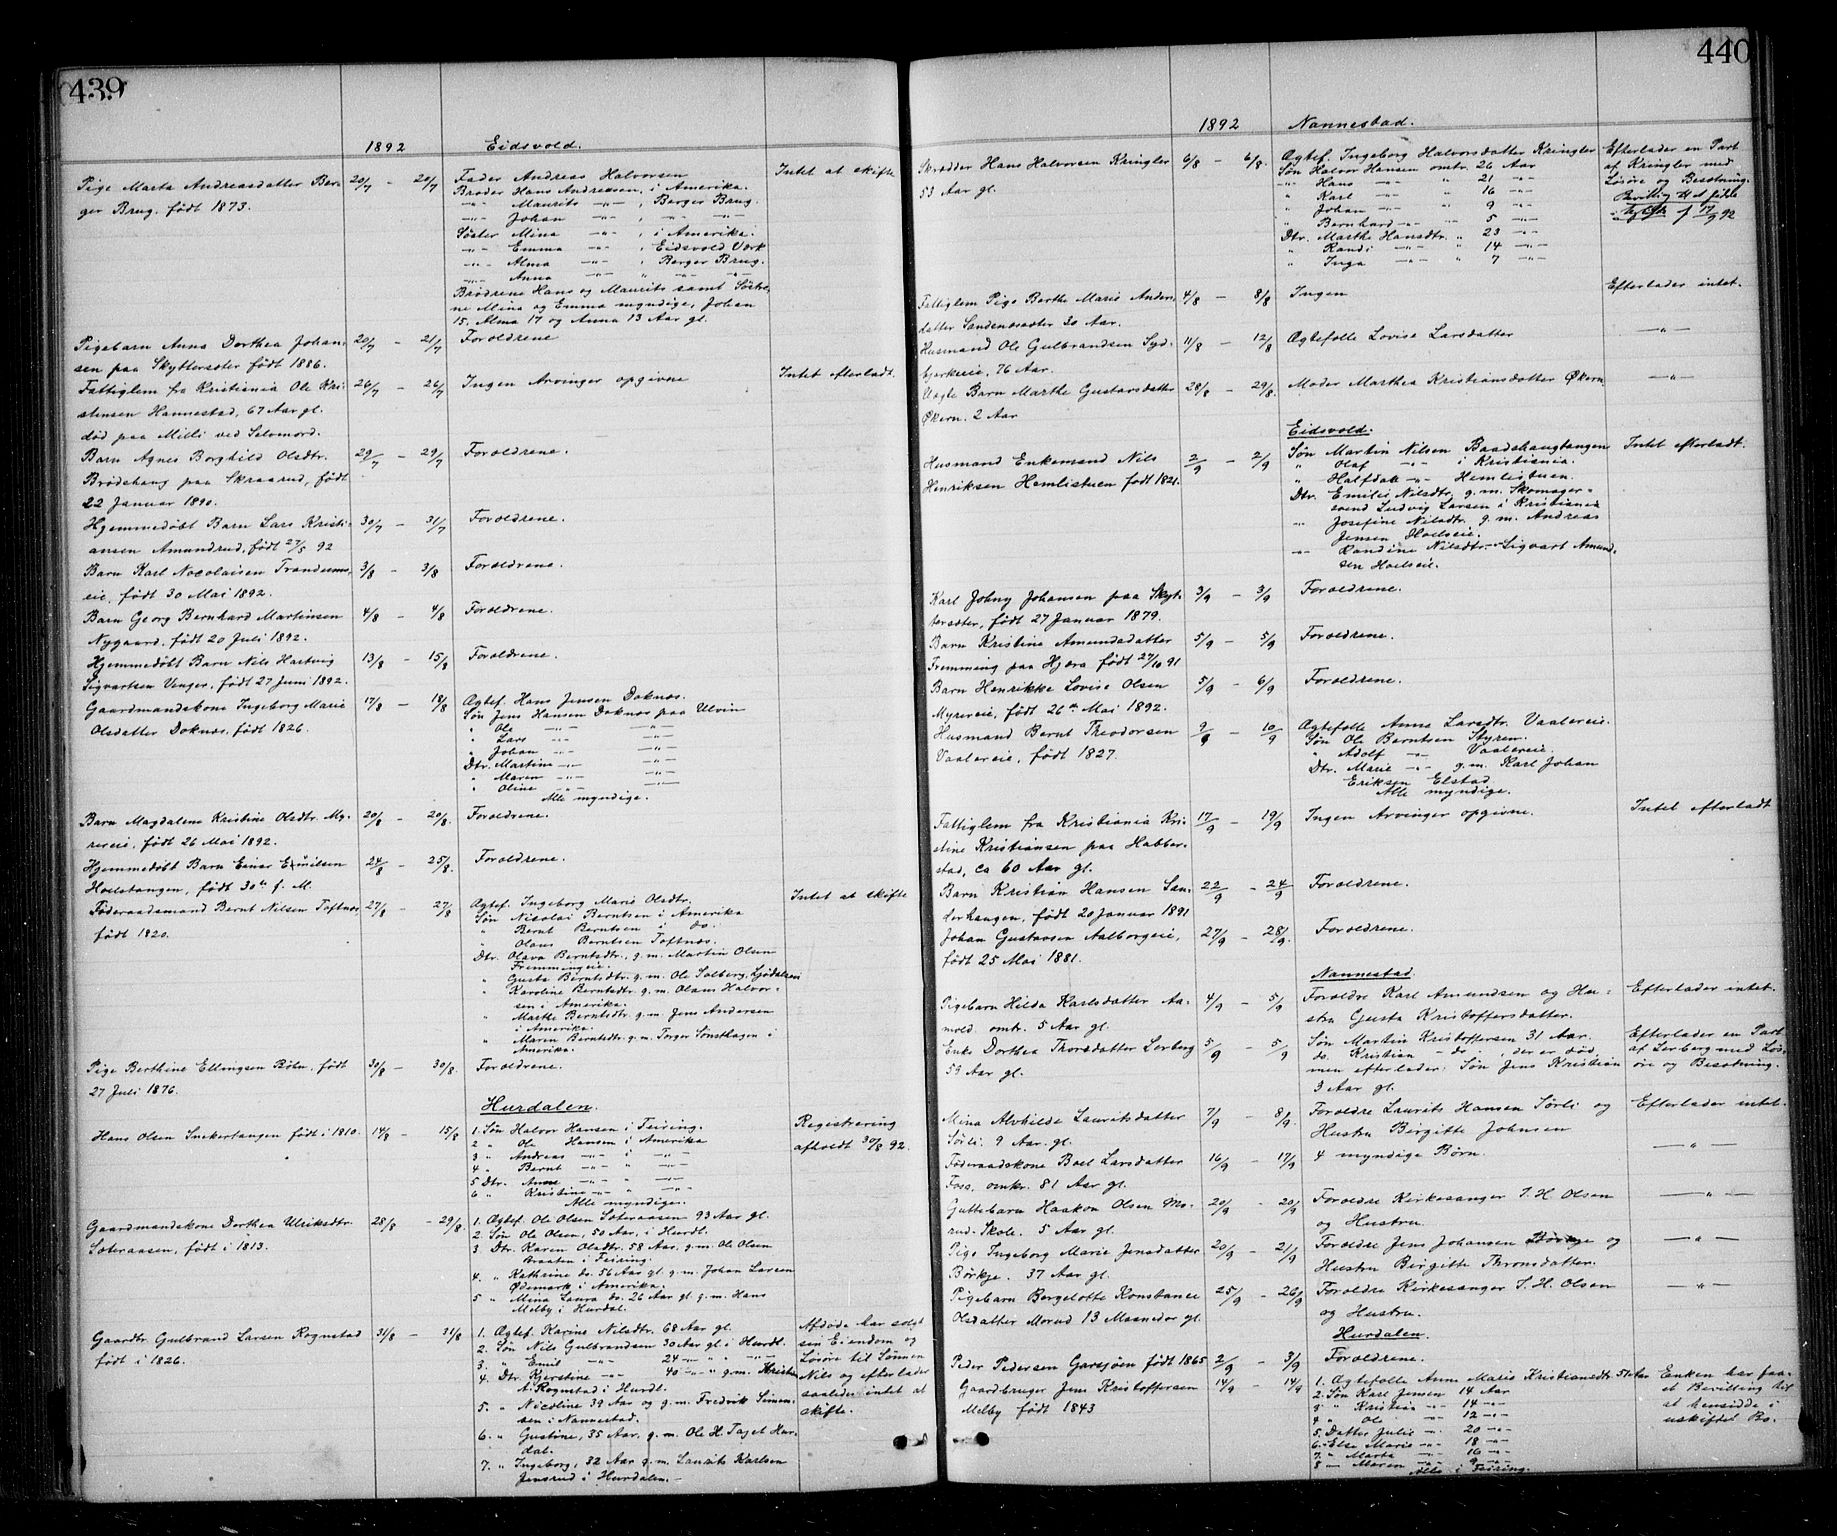 439
1892 Eidsvold.
Pige Marta Andreasdatter Ber- 20/7 — 20/7 Fader Andreas Halvorsen Intet at skifte
ger Brug. født 1873. Broder Hans Andreasen, i Amerika.
-"- Maurits -"- , Berger Brug.
-"- Johan -"- , -"- -"-
Søster Mina -"- , i Amerika.
-"- Emma -"- , Eidsvold Værk
-"- Alma -"- , Berger Brug.
-"- Anna -"- " -"- -"-
Brødrene Hans og Maurits samt Søstre,
ne Mina og Emma myndige, Johan
15, Alma 17 og Anna 13 Aar gl.
Pigebarn Anna Dorthea Johan- 20/7 — 21/7 Forældrene
sen paa Skyttersæter født 1886.
Fattiglem fra Kristiania Ole Kri- 26/7 — 26/7 Ingen Arvinger opgivne Intet efterladt.
stensen Hannestad, 67 Aar gl.
død paa Milli ved Selvmord.
Barn Agnes Borghild Olsdtr. 29/7 — 29/7 Forældrene.
Brødshaug paa Skraarud, født
22 Januar 1890.
Hjemmedøbt Barn Lars Kristi- 30/7 — 31/7 Forældrene.
ansen Amundrud, født 27/5 92
Barn Karl Nocolaisen Trandums, 3/8 — 3/8 Forældrene.
eie, født 30 Mai 1892.
Barn Georg Bernhard Martinsen 4/8 — 4/8 Forældrene.
Nygaard, født 20 Juli 1892.
Hjemmedøbt Barn Nils Hartvig 13/8 — 15/8 Forældrene.
Sigvartsen Unger, født 27 Juni 1892.
Gaardmandskone Ingeborg Marie 17/8 — 18/8 Ægtef. Hans Jensen Doknæs.
Olsdatter Doknæs, født 1826. Søn Jens Hansen Doknæs paa Ulvin
" Ole -"- -"-
" Lars -"- -"-
" Johan -"- -"-
Dtr. Martine -"- -"-
" Maren -"- -"-
" Oline -"- -"-
Alle myndige.
Barn Magdalene Kristine Olsdtr. My- 20/8 — 20/8. Forældrene.
rereie, født 26 Mai 1892.
Hjemmedøbt Barn Einar Emilsen 24/8 — 25/8. Forældrene.
Hoelstangen, født 30te f. M.
Føderaadsmand Bernt Nilsen Toftnæs 27/8 — 27/8 Ægtef. Ingeborg Marie Olsdtr. Intet at skifte
født 1820. Søn Nicolai Berntsen i Amerika
" Bernt Berntsen i do.
" Olaus Berntsen Toftnæs.
Dtr. Olava Berntsdtr., g. m. Martin Olsen
Fremmingeie.
" Gusta Berntsdtr. g. m. Ole Solberg, Ljødalsen
" Karoline Berntsdtr. g. m. Olaus Halvor-
sen i Amerika.
" Marthe Berntsdtr. g. m. Jens Andersen
i Amerika.
" Maren Berntsdtr. g. m. Torger Sønsthagen i
Amerika.
Pige Berthine Ellingsen Bøhn, født 30/8 — 30/8. Forældrene.
27 Juli 1876.
Hurdalen.
Hans Olsen Snekertangen født i 1810. 14/8 — 15/8 1. Søn Halvor Hansen i Feiring. Registrering
2 " Ole Hansen i Amerika afholdt 30/8 92.
3 " Andreas -"- i -"-
4 " Bernt -"- " -"-
5 Dtr. Anne -"- " -"-
6 " Kristine -"- " -"-
Alle myndige.
Gaardmandskone Dorthea Ulriksdtr. 28/8 — 29/8. 1. Ægtef. Ole Olsen Sæteraasen 93 Aar gl.
Sæteraasen, født i 1813. 2. Søn Ole Olsen, 50 Aar, i Hurdl.
3 Dtr. Karen Olsdtr. 58 Aar, g. m. Ole Olsen
Braaten i Feiring.
4. " Kathrine do. 56 Aar gl. g. m. Johan Larsen
Ødemark i Amerika.
5 " Mina Laura do. 26 Aar gl. g. m. Hans
Melby i Hurdal.
Gaardbr. Gulbrand Larsen Rognstad 31/8 — 31/8. 1. Ægtef. Karine Nilsdtr. 68 Aar gl. Afdøde har solgt
født i 1826. 2. Søn Nils Gulbrandsen 30 Aar gl. i Hurdl. sin Eiendom og
3. " Emil -"- 24 -"- " -"- Løsøre til Sønnen
4. Dtr. Kjerstine -"- 40 -"- " g. m. Kristian Nils og efterlader
A. Rognstad i Hurdl. saaledes intet at
5. " Nicoline 39 Aar og g. m. Fredrik Simen- skifte.
sen i Nannestad.
6. " Gustine, 35 Aar, g. m. Ole H. Taget Hur-
dal.
7. " Ingeborg, 32 Aar g. m. Laurits Karlsen
Jensrud i Hurdalen.
440
1892 Nannestad.
Skrædder Hans Halvorsen Kringler 6/8 — 6/8. Ægtef. Ingeborg Halvorsdatter Kringler Efterlader en Part
53 Aar gl. Søn Halvor Hansen omtr. 26 Aar af Kringler med
" Hans -"- " 21 -"- Løsøre og Besætning.
" Karl -"- " 16 -"- Bevilling
" Johan -"- " 9 -"-
" Bernhard -"- " 5 -"-
Dtr. Marthe Hansdtr. " 23 -"-
" Randi -"- " 14 -"-
" Inga -"- " 7 -"-
Fattiglem Pige Berthe Marie Anders- 4/8 — 8/8 Ingen Efterlader intet.
datter Sandenosæter 30 Aar.
Husmand Ole Gulbrandsen Syd- 11/8 — 12/8 Ægtefælle Lovise Larsdatter — " —
bjerkeeie, 76 Aar.
Uægte Barn Marthe Gustavsdatter 28/8 — 29/8. Moder Marthea Kristiansdatter Økern — " —
Økern. 2 Aar
Eidsvold.
Husmand Enkemand Nils 2/9 — 2/9 Søn Martin Nilsen Baadshaugtangen Intet efterladt.
Henriksen Hemlistuen født 1821. " Olaf -"- i Kristiania.
" Halfdan -"- Hemlistuen.
Dtr. Emilie Nilsdtr. g. m. Skomager-
svend Ludvig Larsen i Kristiania
-"- Josefine Nilsdtr. g. m. Andreas
Jensen Hoelseie.
-"- Randine Nilsdtr. -"- Sigvart Amund-
sen Hoelseie.
Karl Johny Johansen paa Skyt- 3/9 — 3/9 Forældrene.
tersæter, født 27 Januar 1879.
Barn Kristine Amundsdatter 5/9 — 5/9 Forældrene.
Fremming paa Hjera født 27/10 91
Barn Henrikke Lovise Olsen 5/9 — 6/9 Forældrene.
Myrereie, født 26te Mai 1892.
Husmand Bernt Theodorsen 9/9 — 10/9 Ægtefælle Anne Larsdtr. Vaalereie.
Vaalereie, født 1827. Søn Ole Berntsen Styren.
" Adolf -"- Vaalereie.
Dtr. Marie -"- g. m. Karl Johan
Eriksen Elstad.
Alle myndige.
Fattiglem fra Kristiania Kri- 17/9 — 19/9 Ingen Arvinger opgivne. Intet efterladt
stine Kristiansen paa Habber-
stad, ca 60 Aar gl.
Barn Kristian Hansen San- 22/9 — 24/9 Forældrene.
derhaugen, født 20 Januar 1891
Johan Gustavsen Aalborgeie, 27/9 — 28/9. Forældrene.
født 25 Mai 1881.
Nannestad.
Pigebarn Hilda Karlsdatter Aa- 4/9 — 5/9 Forældre Karl Amundsen og Hu- Efterlader intet.
mold. omtr. 5 Aar gl. stru Gusta Kristoffersdatter.
Enke Dorthea Thorsdatter Lerberg 5/9 — 5/9 Søn Martin Kristoffersen 31 Aar. Efterlader en Part
59 Aar gl. do. Kristian — do — , der er død, af Lerberg med Løs-
men efterlader: Søn Jens Kristian øre og Besætning.
3 Aar gl.
Mina Alvhilde Lauritsdatter 7/9 — 8/9. Forældre Laurits Hansen Sørli og Efterlader intet.
Sørli. 9 Aar. gl. Hustru Birgitte Johnsen
Føderaadskone Boel Larsdatter 16/9 — 17/9 4 myndige Børn. — " —
Foss, omtr. 81 Aar gl.
Guttebarn Haakon Olsen Mo- 20/9 — 20/9 Forældre Kirkesanger T. H. Olsen — " —
rud. Skole. 5 Aar gl. og Hustru.
Pige Ingeborg Marie Jensdatter 20/9 — 21/9 Forældre Jens Johansen Børkje og — " —
Børkje. 37 Aar gl. Hustru Birgitte Thronsdatter.
Pigebarn Bergelotte Konstance 25/9 — 26/9 Forældre Kirkesanger T. H. Olsen — " —
Olsdatter Morud 13 Maaneder gl. og Hustru.
Hurdalen.
Peder Pedersen Garsjøen født 1865 2/9 — 3/9 Forældrene.
Gaardbruger Jens Kristoffersen 14/9 — 14/9 1. Ægtefælle Anne Marie Kristiansdtr. 51 Aar Enken har faa-
Melby født 1843 2. Søn Karl Jensen 14 Aar et Bevilling til
3 " Kristian -"- 14 -"- at hensidde i
4 " Ole -"- 12 -"- uskiftet Bo.
5. Datter Julie -"- 20 -"-
6. -"- Else Marie -"- 18 -"-
7. " Marta -"- 16 -"-
8 -"- Maren -"- 9 -"-
Alle i Feiring.